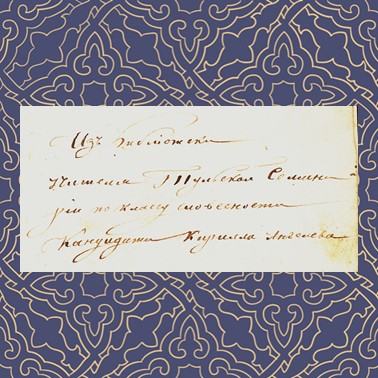 Изъ библіотеки
Учителя Тульской Семина
ріи по классу словесности
Кандидата Кирилла Ангелева